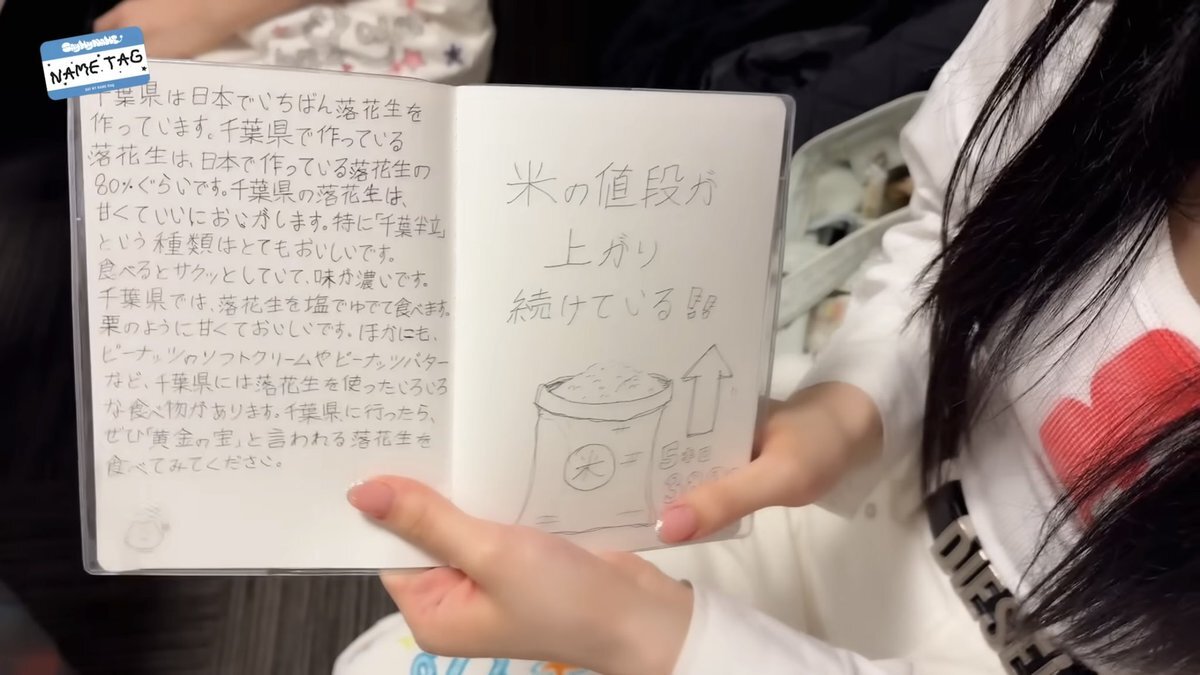 SayMyName
NAME TAG
千葉県は日本でいちばん落花生を
作っています。千葉県で作っている
落花生は、日本で作っている落花生の
80%ぐらいです。千葉県の落花生は、
甘くていいにおいがします。特に「千葉半立」
という種類はとてもおいしいです。
食べるとサクッとしていて、味が濃いです。
千葉県では、落花生を塩でゆでて食べます。
栗のように甘くておいしいです。ほかにも、
ピーナッツのソフトクリームやピーナッツバター
など、千葉県には落花生を使ったいろいろ
な食べ物があります。千葉県に行ったら、
ぜひ「黄金の宝」と言われる落花生を
食べてみてください。
米の値段が
上がり
続けている!!
米
DIESEL